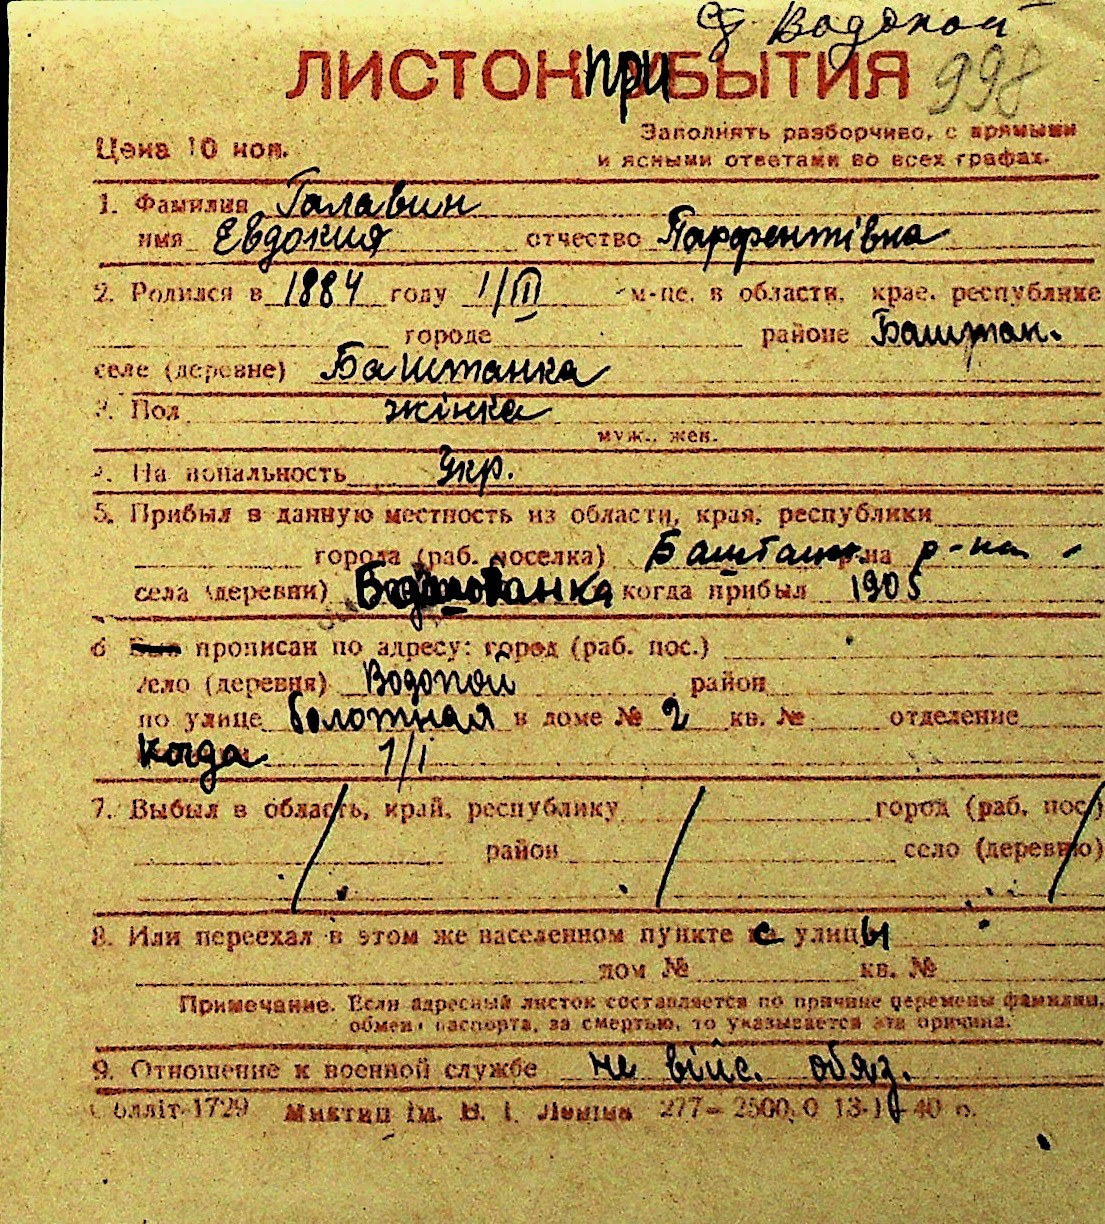 ст. Водопой
ЛИСТОК ПРИБЫТИЯ 998
Цена 10 коп.
Заполнять разборчиво, с прямыми
и ясными ответами во всех графах.
1. Фамилия Галавин
имя Евдокия отчество Парфентівна
2. Родился в 1884 году 1/III м-це, в области, крае, республике
городе районе Баштан.
селе (деревне) Баштанка
3. Пол жінка
муж., жен.
4. Национальность Укр.
5. Прибыл в данную местность из области, края, республики
города (раб. поселка) Баштан р-на
села (деревни) когда прибыл 1905
6 прописан по адресу: город (раб. пос.)
село (деревня) Водопой район
по улице Болотная в доме № 2 кв. № отделение
Когда 1/I
7. Выбыл в область, край, республику город (раб. пос.)
район село (деревню)
8. Или переехал в этом же населенном пункте с улицы
дом № кв. №
Примечание. Если адресный листок составляется по причине перемены фамилии,
обмена паспорта, за смертью, то указывается эта причина.
9. Отношение к военной службе не війс. обяз.
Облліт 1729 ім. В. І. Леніна 277— 2500,0 13-1 40 р.